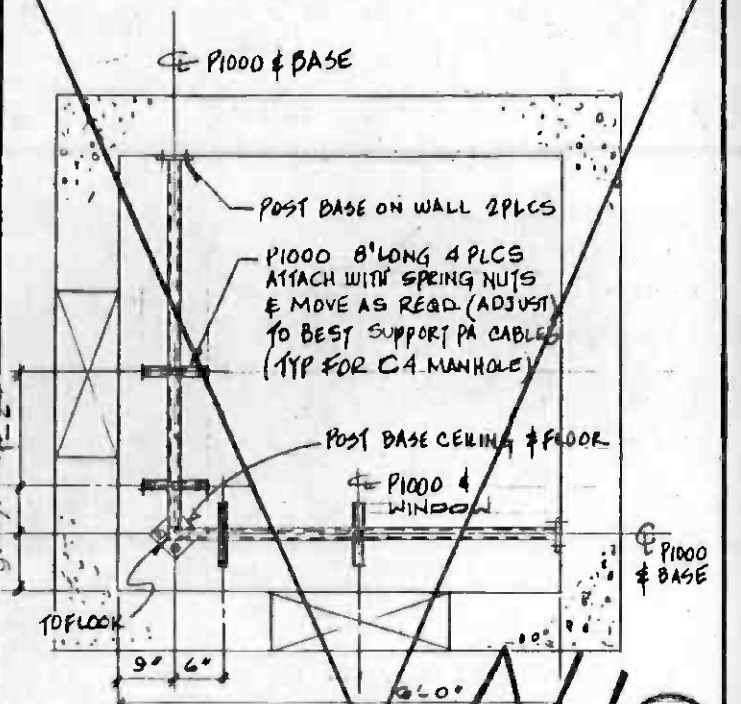 ℄ P1000 & BASE
POST BASE ON WALL 2PLCS
P1000 8" LONG 4 PLCS
ATTACH WITH SPRING NUTS
& MOVE AS REQD (ADJUST)
TO BEST SUPPORT PA CABLES
(TYP FOR C4 MANHOLE)
POST BASE CEILING & FLOOR
℄ P1000 &
WINDOW
℄ P1000
& BASE
TO FLOOR
9" 6"